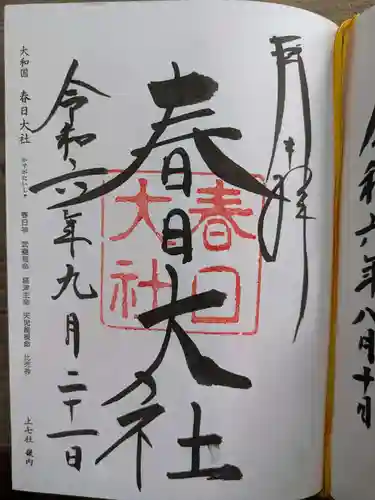 令和六年八月十日
奉拝
春日大社
春日大社
令和六年九月二十一日
大和国 春日大社 かすがたいしゃ 春日神 武甕槌命 経津主命 天児屋根命 比売神 上七社 畿内